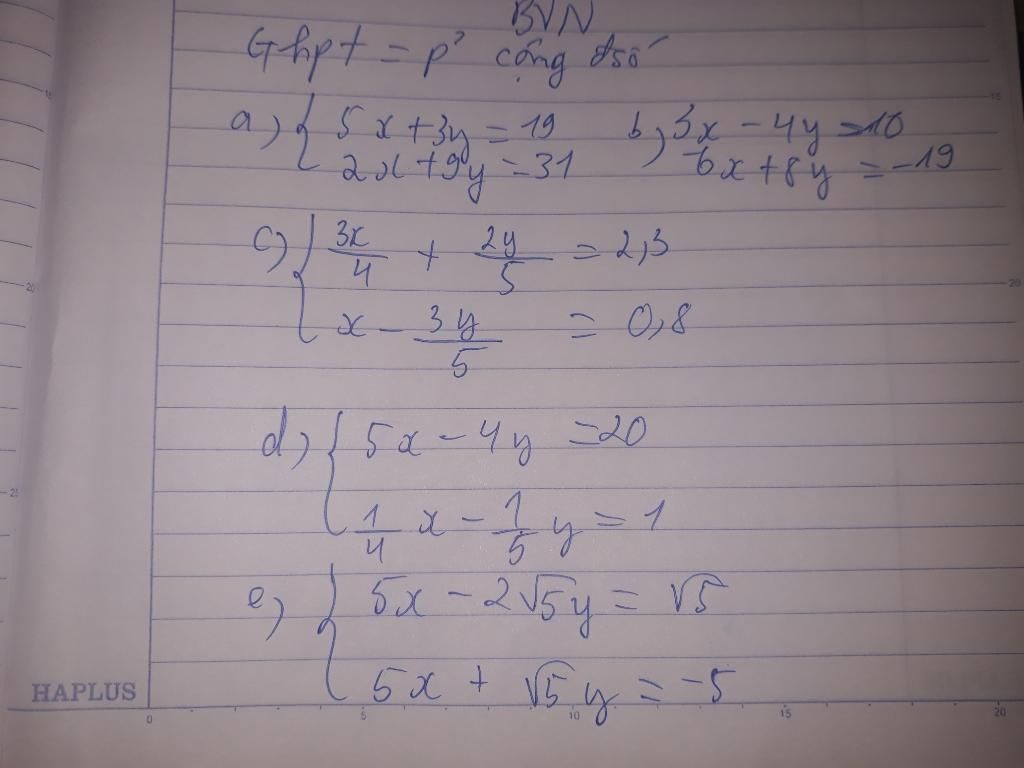 BVN
Ghpt = p² cộng đsố
a) { 5x + 3y = 19   b) 3x - 4y = 10
2x + 9y = 31   -6x + 8y = -19
c) { 3x/4 + 2y/5 = 2,3
x - 3y/5 = 0,8
d) { 5x - 4y = 20
1/4 x - 1/5 y = 1
e) { 5x - 2√5y = √5
5x + √5y = -5
HAPLUS
0 5 10 15 20
15
20
25
15
20